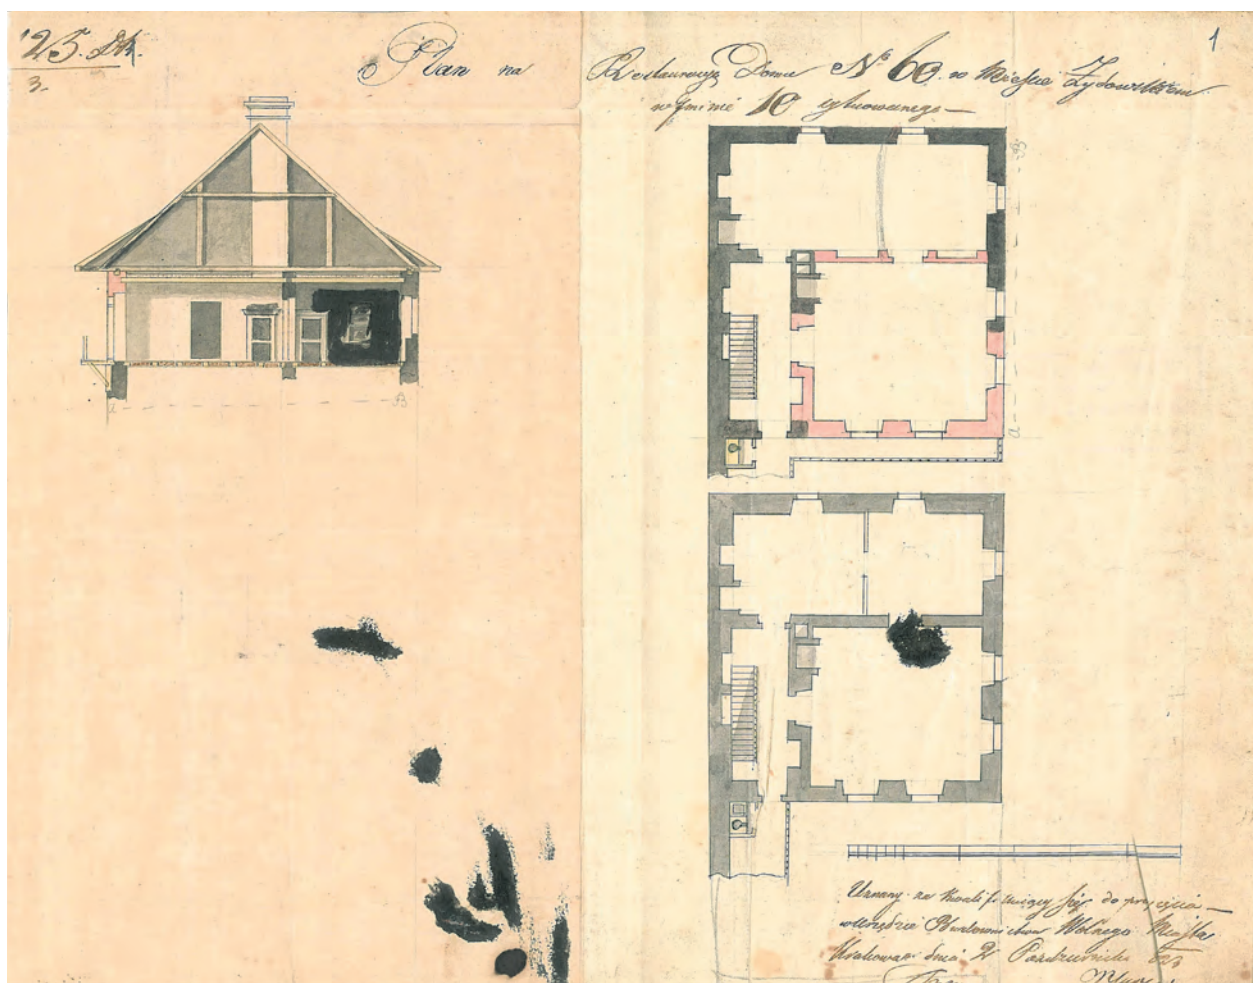 125. Dk.
3.
1
Plan na Restauracyą Domu N° 60. w Mieście Żydowskiem
w Gminie 10 sytuowanego —
B
a
a B
Uznany za kwalifikujący się do przyjęcia —
w Urzędzie Budownictwa Wolnego Miasta
Krakowa dnia 2 Października 823